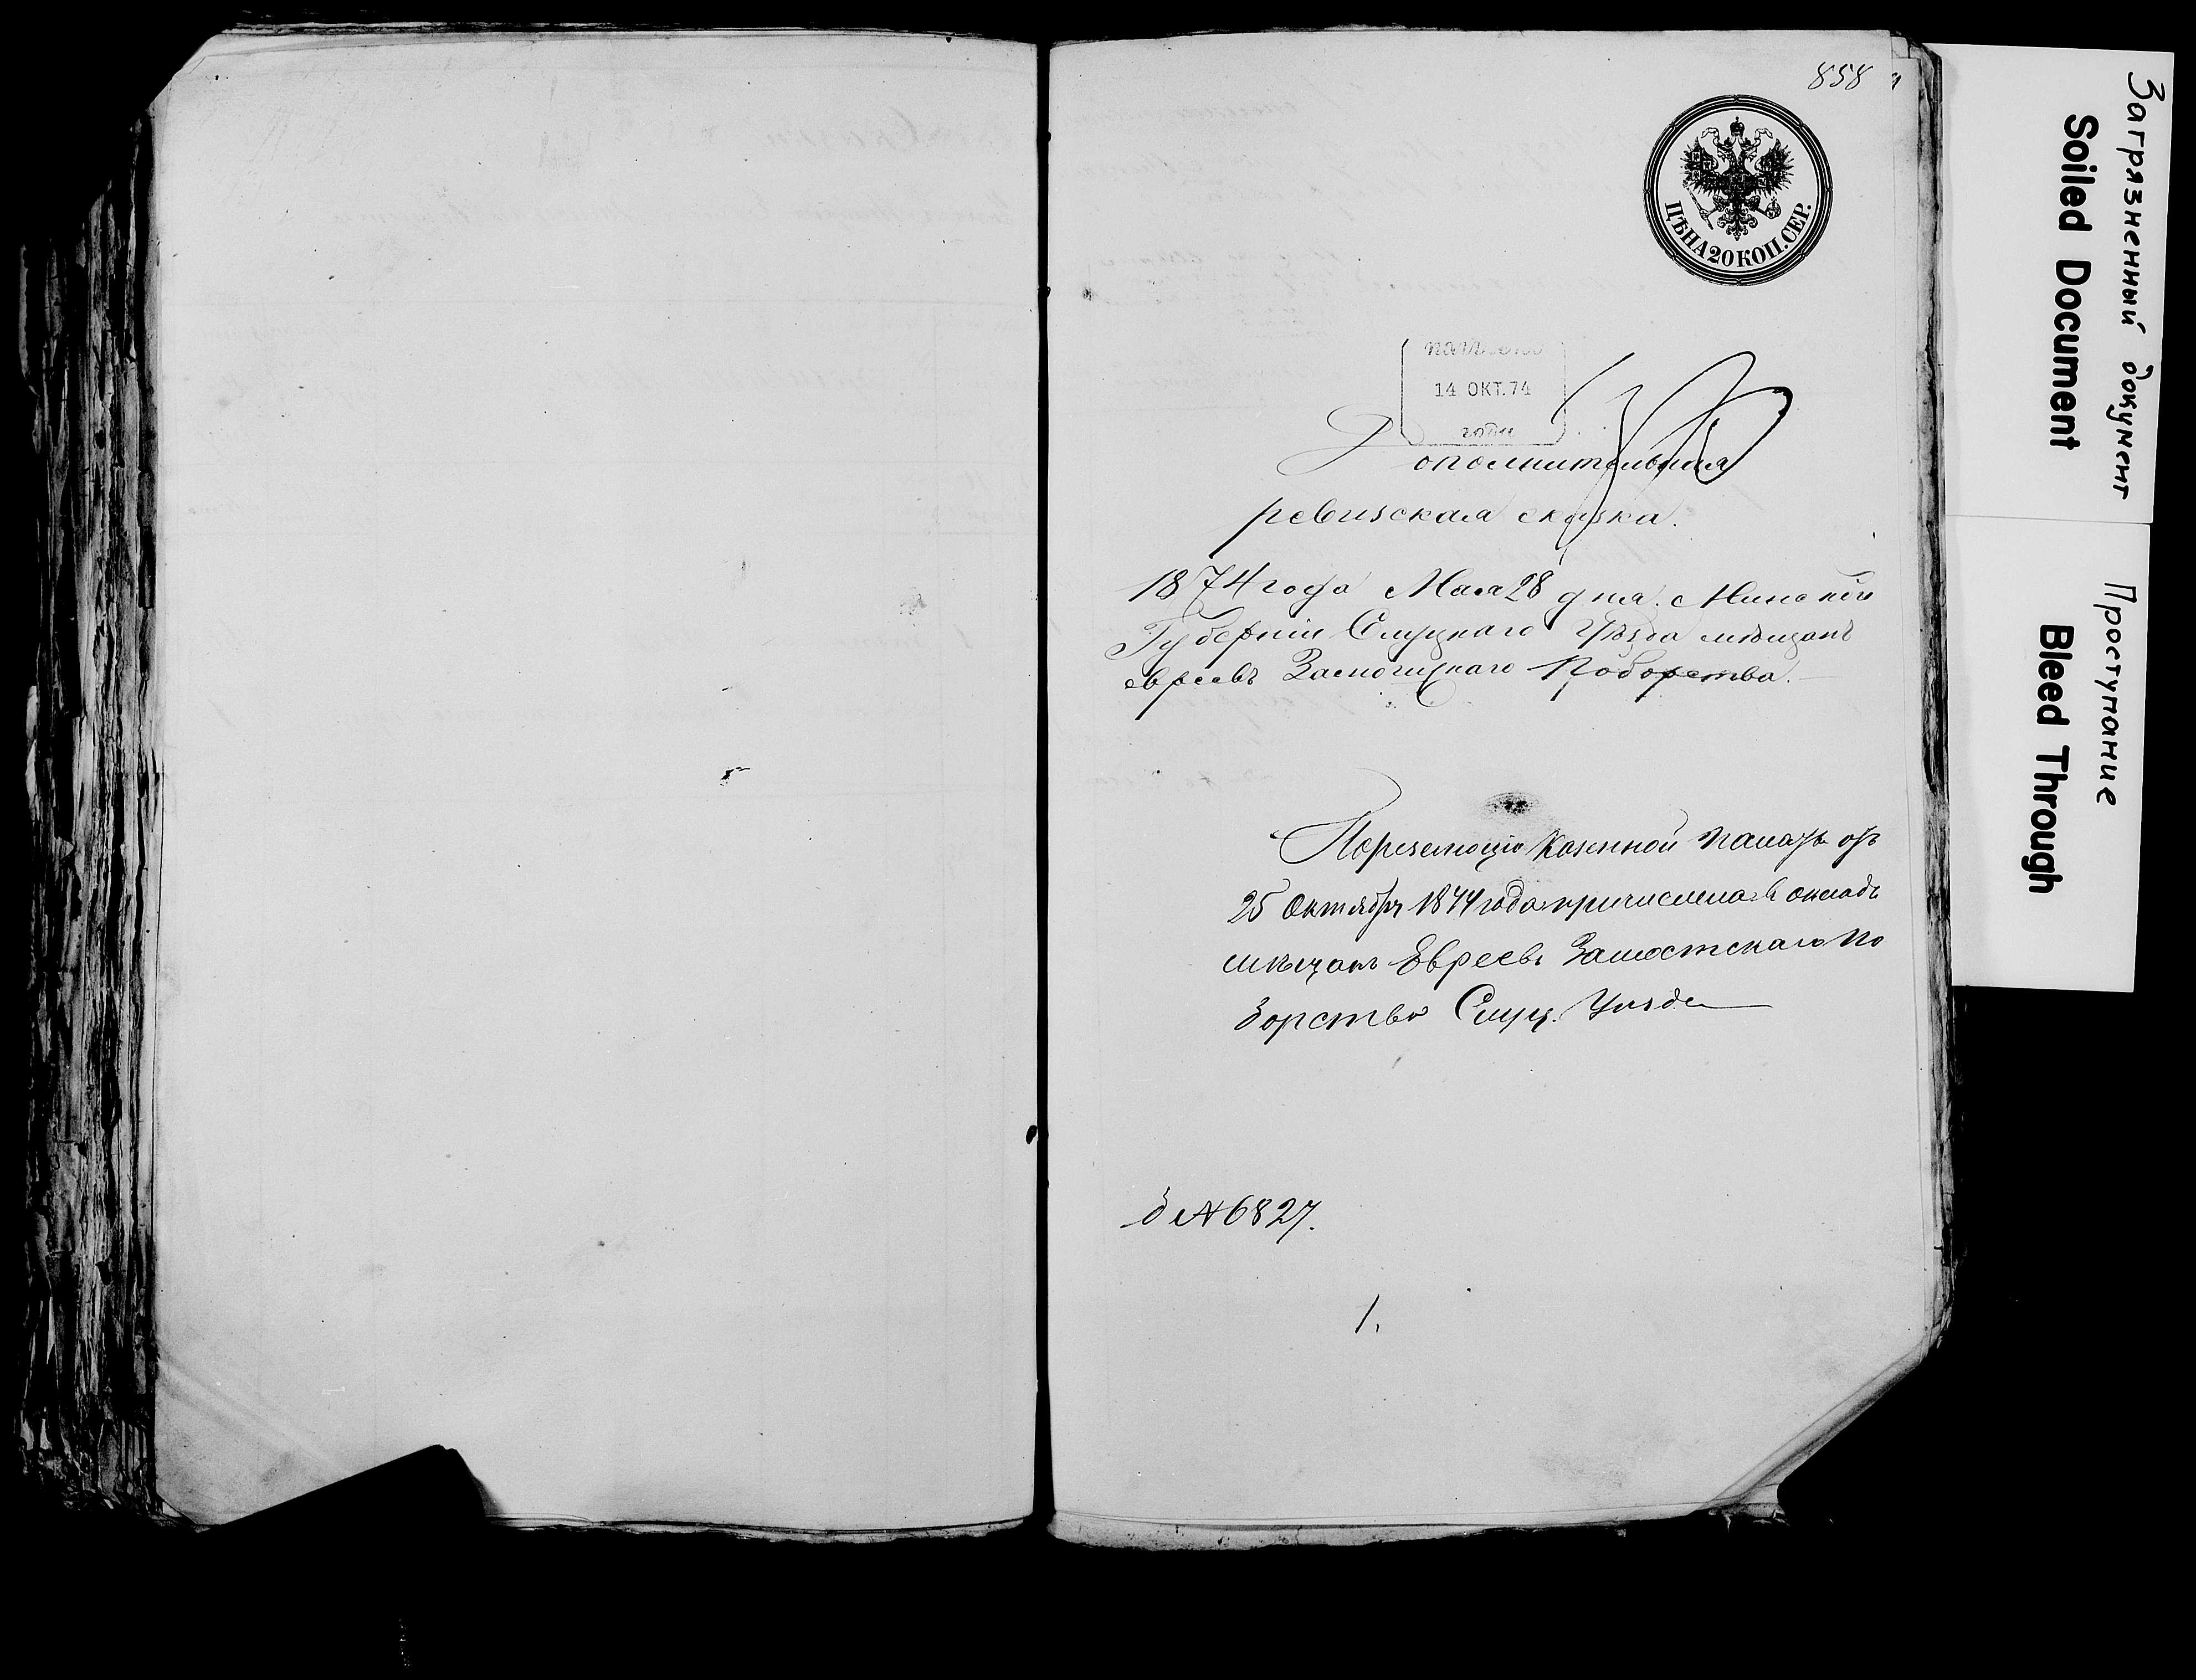 858
ЦѢНА 20 КОП. СЕР.
14 ОКТ. 74
года
Дополнительная
ревизская сказка.
1874 года Мая 28 дня. Минской
Губерніи Слуцкаго Уѣзда мѣщанъ
евреевъ Поборства.
Казенной Палаты отъ
25 Октября 1874 года причислена въ окладъ
мѣщанъ Евреевъ Замостскаго По
борства Слуц. Уѣзда
№ 6827.
1.
Загрязненный документ
Soiled Document
Проступание
Bleed Through